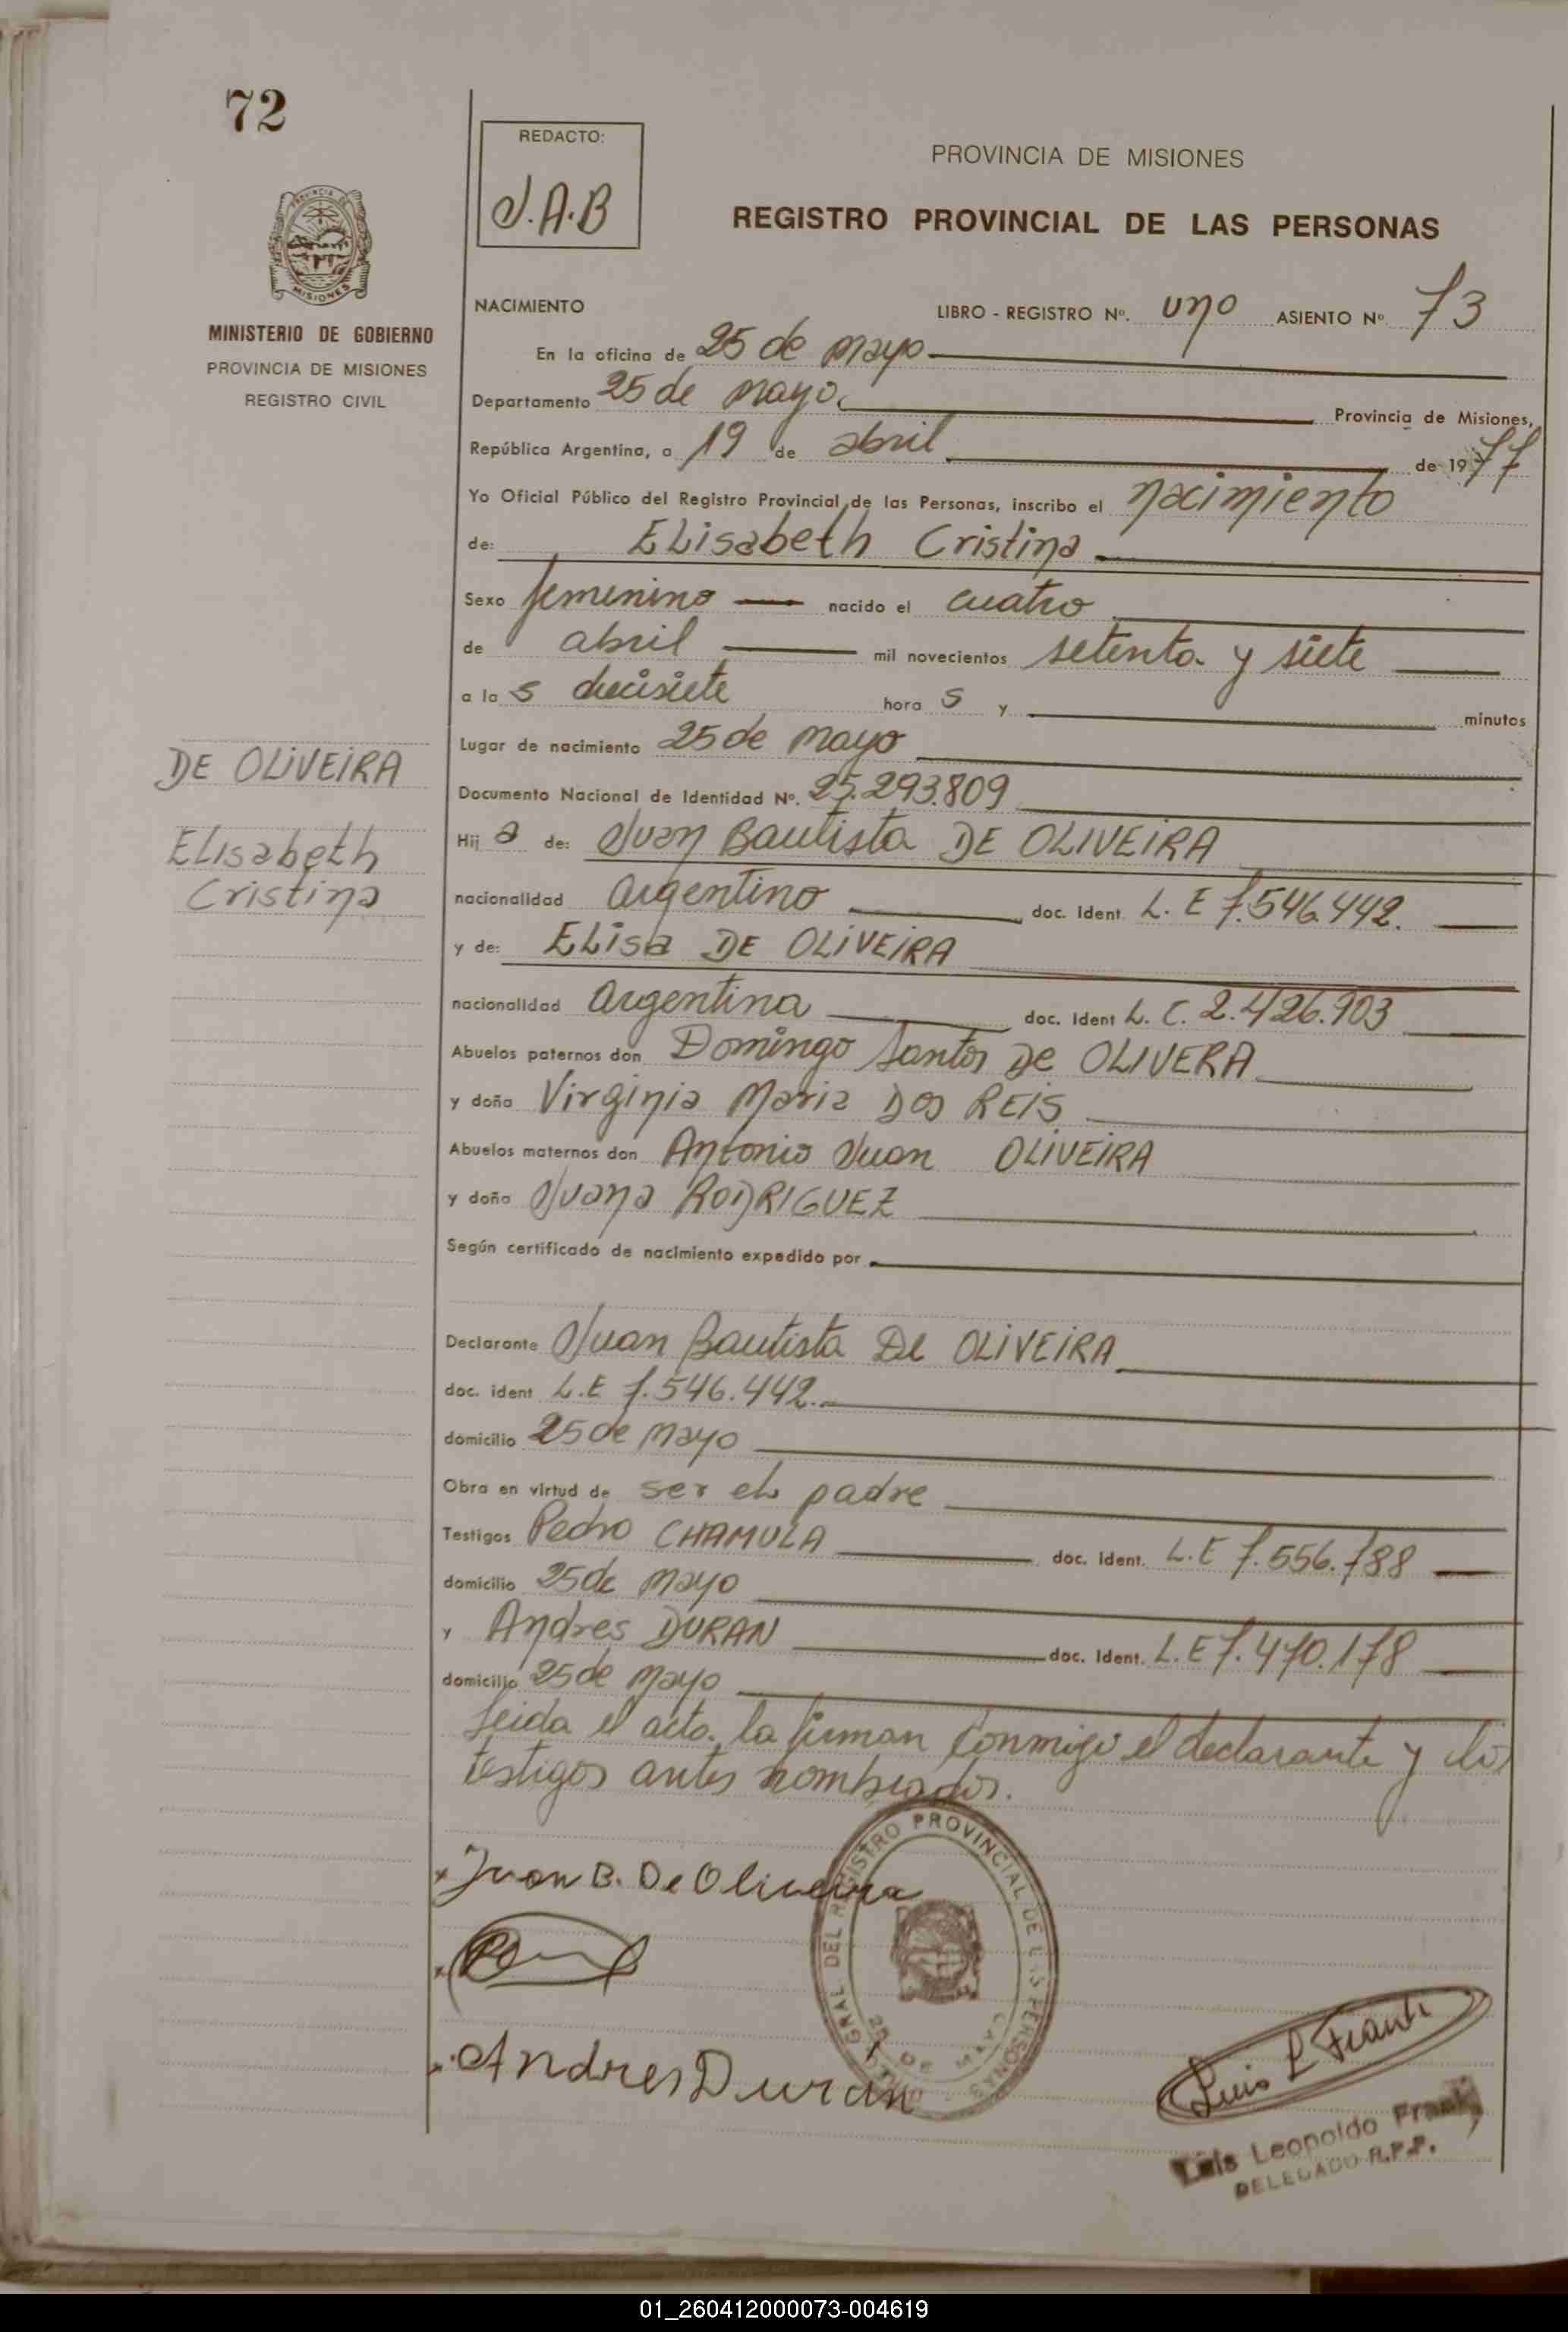 72
REDACTO:
J.A.B
PROVINCIA DE MISIONES
REGISTRO PROVINCIAL DE LAS PERSONAS
MISIONES
MINISTERIO DE GOBIERNO
PROVINCIA DE MISIONES
REGISTRO CIVIL
NACIMIENTO LIBRO - REGISTRO Nº. uno ASIENTO Nº 73
En la oficina de 25 de mayo
Departamento 25 de mayo Provincia de Misiones,
República Argentina, a 19 de abril de 1977
Yo Oficial Público del Registro Provincial de las Personas, inscribo el nacimiento
de: ELisabeth Cristina
Sexo femenino nacido el cuatro
de abril mil novecientos setenta y siete
a la s diecisiete hora s y minutos
Lugar de nacimiento 25 de mayo
DE OLIVEIRA
Elisabeth
Cristina
Documento Nacional de Identidad Nº. 25.293.809
Hij a de: Juan Bautista DE OLIVEIRA
nacionalidad argentino doc. Ident. L. E 7.546.442.
y de: ELisa DE OLIVEIRA
nacionalidad argentina doc. Ident L. C. 2.426.903
Abuelos paternos don Domingo Santos De OLIVERA
y doña Virginia Maria DOS REIS
Abuelos maternos don Antonio Juan OLIVEIRA
y doña Juana RODRIGUEZ
Según certificado de nacimiento expedido por
Declarante Juan Bautista De OLIVEIRA
doc. ident L.E 7.546.442.
domicilio 25 de mayo
Obra en virtud de ser el padre
Testigos Pedro CHAMULA doc. Ident. L.E 7.556.788
domicilio 25 de mayo
y Andres DURAN doc. Ident. L.E 7.470.178
domicilio 25 de mayo
Leida el acta la firman conmigo el declarante y los
testigos antes nombrados.
Juan B. De Oliveira
GRAL DEL REGISTRO PROVINCIAL DE LAS PERSONAS
25 DE MAYO
Andres Duran
Luis L Frank
Luis Leopoldo Frank
DELEGADO R.P.P.
01_260412000073-004619